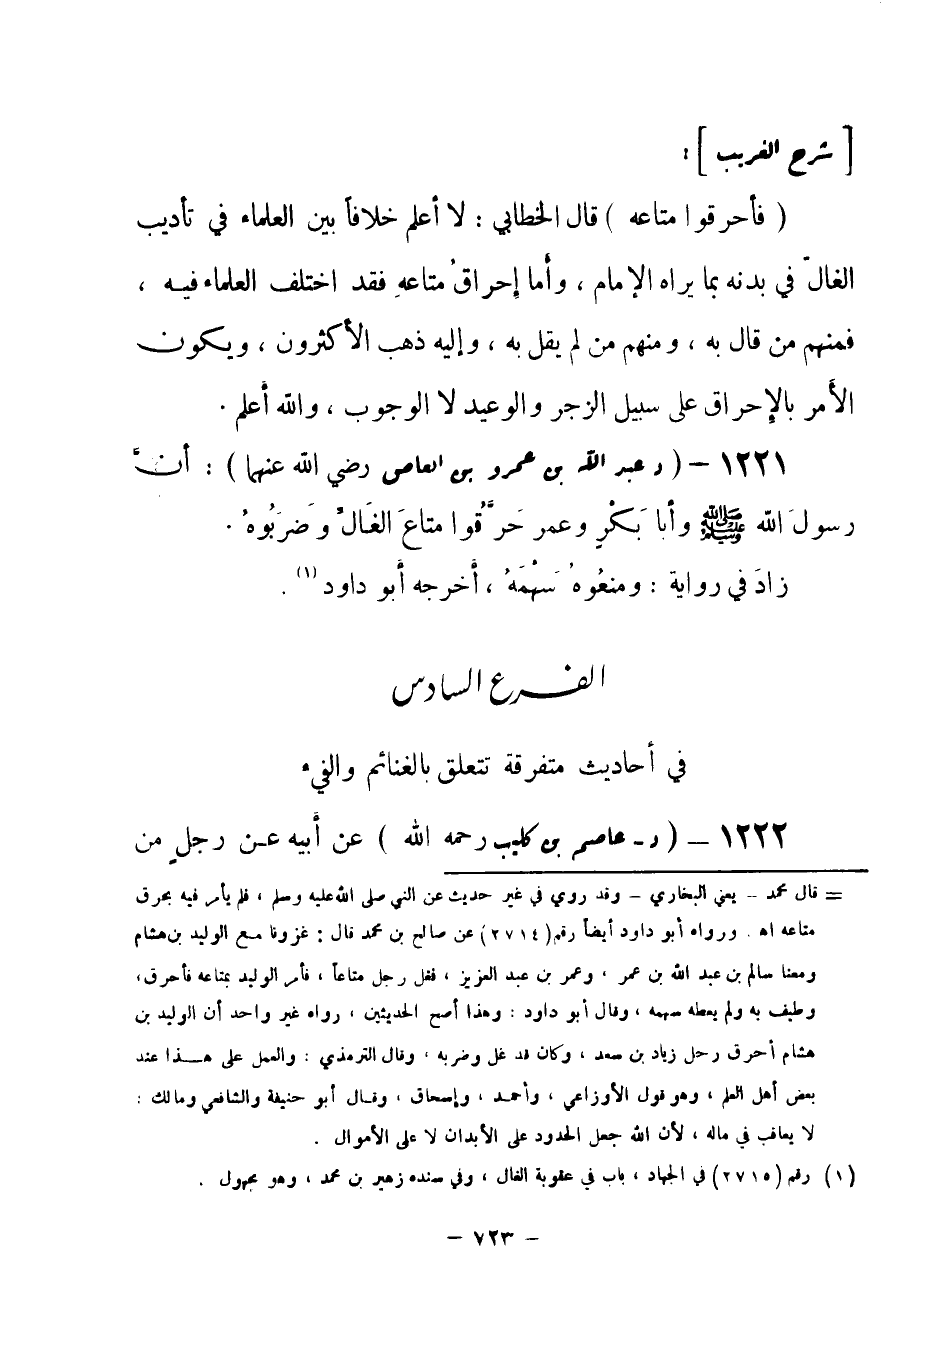 [ شرح الغريب ] :
( فأحرقوا متاعه ) قال الخطابي : لا أعلم خلافاً بين العلماء في تأديب
الغالّ في بدنه بما يراه الإمام ، وأما إحراقُ متاعهِ فقد اختلف العلماء فيـه ،
فمنهم من قال به ، ومنهم من لم يقل به ، وإليه ذهب الأكثرون ، ويكون
الأمر بالإحراق على سبيل الزجر والوعيد لا الوجوب ، والله أعلم .
١٢٢١ – ( د عبد الله بن عمرو بن العاص رضي الله عنهما ) : أنَّ
رسولَ الله ﷺ وأبا بَكْرٍ وعمر حَرَّقُوا متاعَ الغَالِّ وضَرَبُوهُ .
زادَ في رواية : ومنعُوهُ سَهْمَهُ ، أخرجه أبو داود (١) .
الفـرع السادس
في أحاديث متفرقة تتعلق بالغنائم والفيء
١٢٢٢ – ( د - عاصم بن كليب رحمه الله ) عن أبيه عـن رجلٍ من
= قال محمد – يعني البخاري – وقد روي في غير حديث عن النبي صلى الله عليه وسلم ، فلم يأمر فيه بحرق
متاعه اه . ورواه أبو داود أيضاً رقم (٢٧١٤) عن صالح بن محمد قال : غزونا مـع الوليد بن هشام
ومعنا سالم بن عبد الله بن عمر ، وعمر بن عبد العزيز ، فغل رجل متاعاً ، فأمر الوليد بمتاعه فأحرق ،
وطيف به ولم يعطه سهمه ، وقال أبو داود : وهذا أصح الحديثين ، رواه غير واحد أن الوليد بن
هشام أحرق رحل زياد بن سعد ، وكان قد غل وضربه ، وقال الترمذي : والعمل على هـذا عند
بعض أهل العلم ، وهو قول الأوزاعي ، وأحمـد ، وإسحاق ، وقـال أبو حنيفة والشافعي ومالك :
لا يعاقب في ماله ، لأن الله جعل الحدود على الأبدان لا على الأموال .
(١) رقم (٢٧١٥) في الجهاد ، باب في عقوبة الغال ، وفي سنده زهير بن محمد ، وهو مجهول .
– ٧٢٣ –